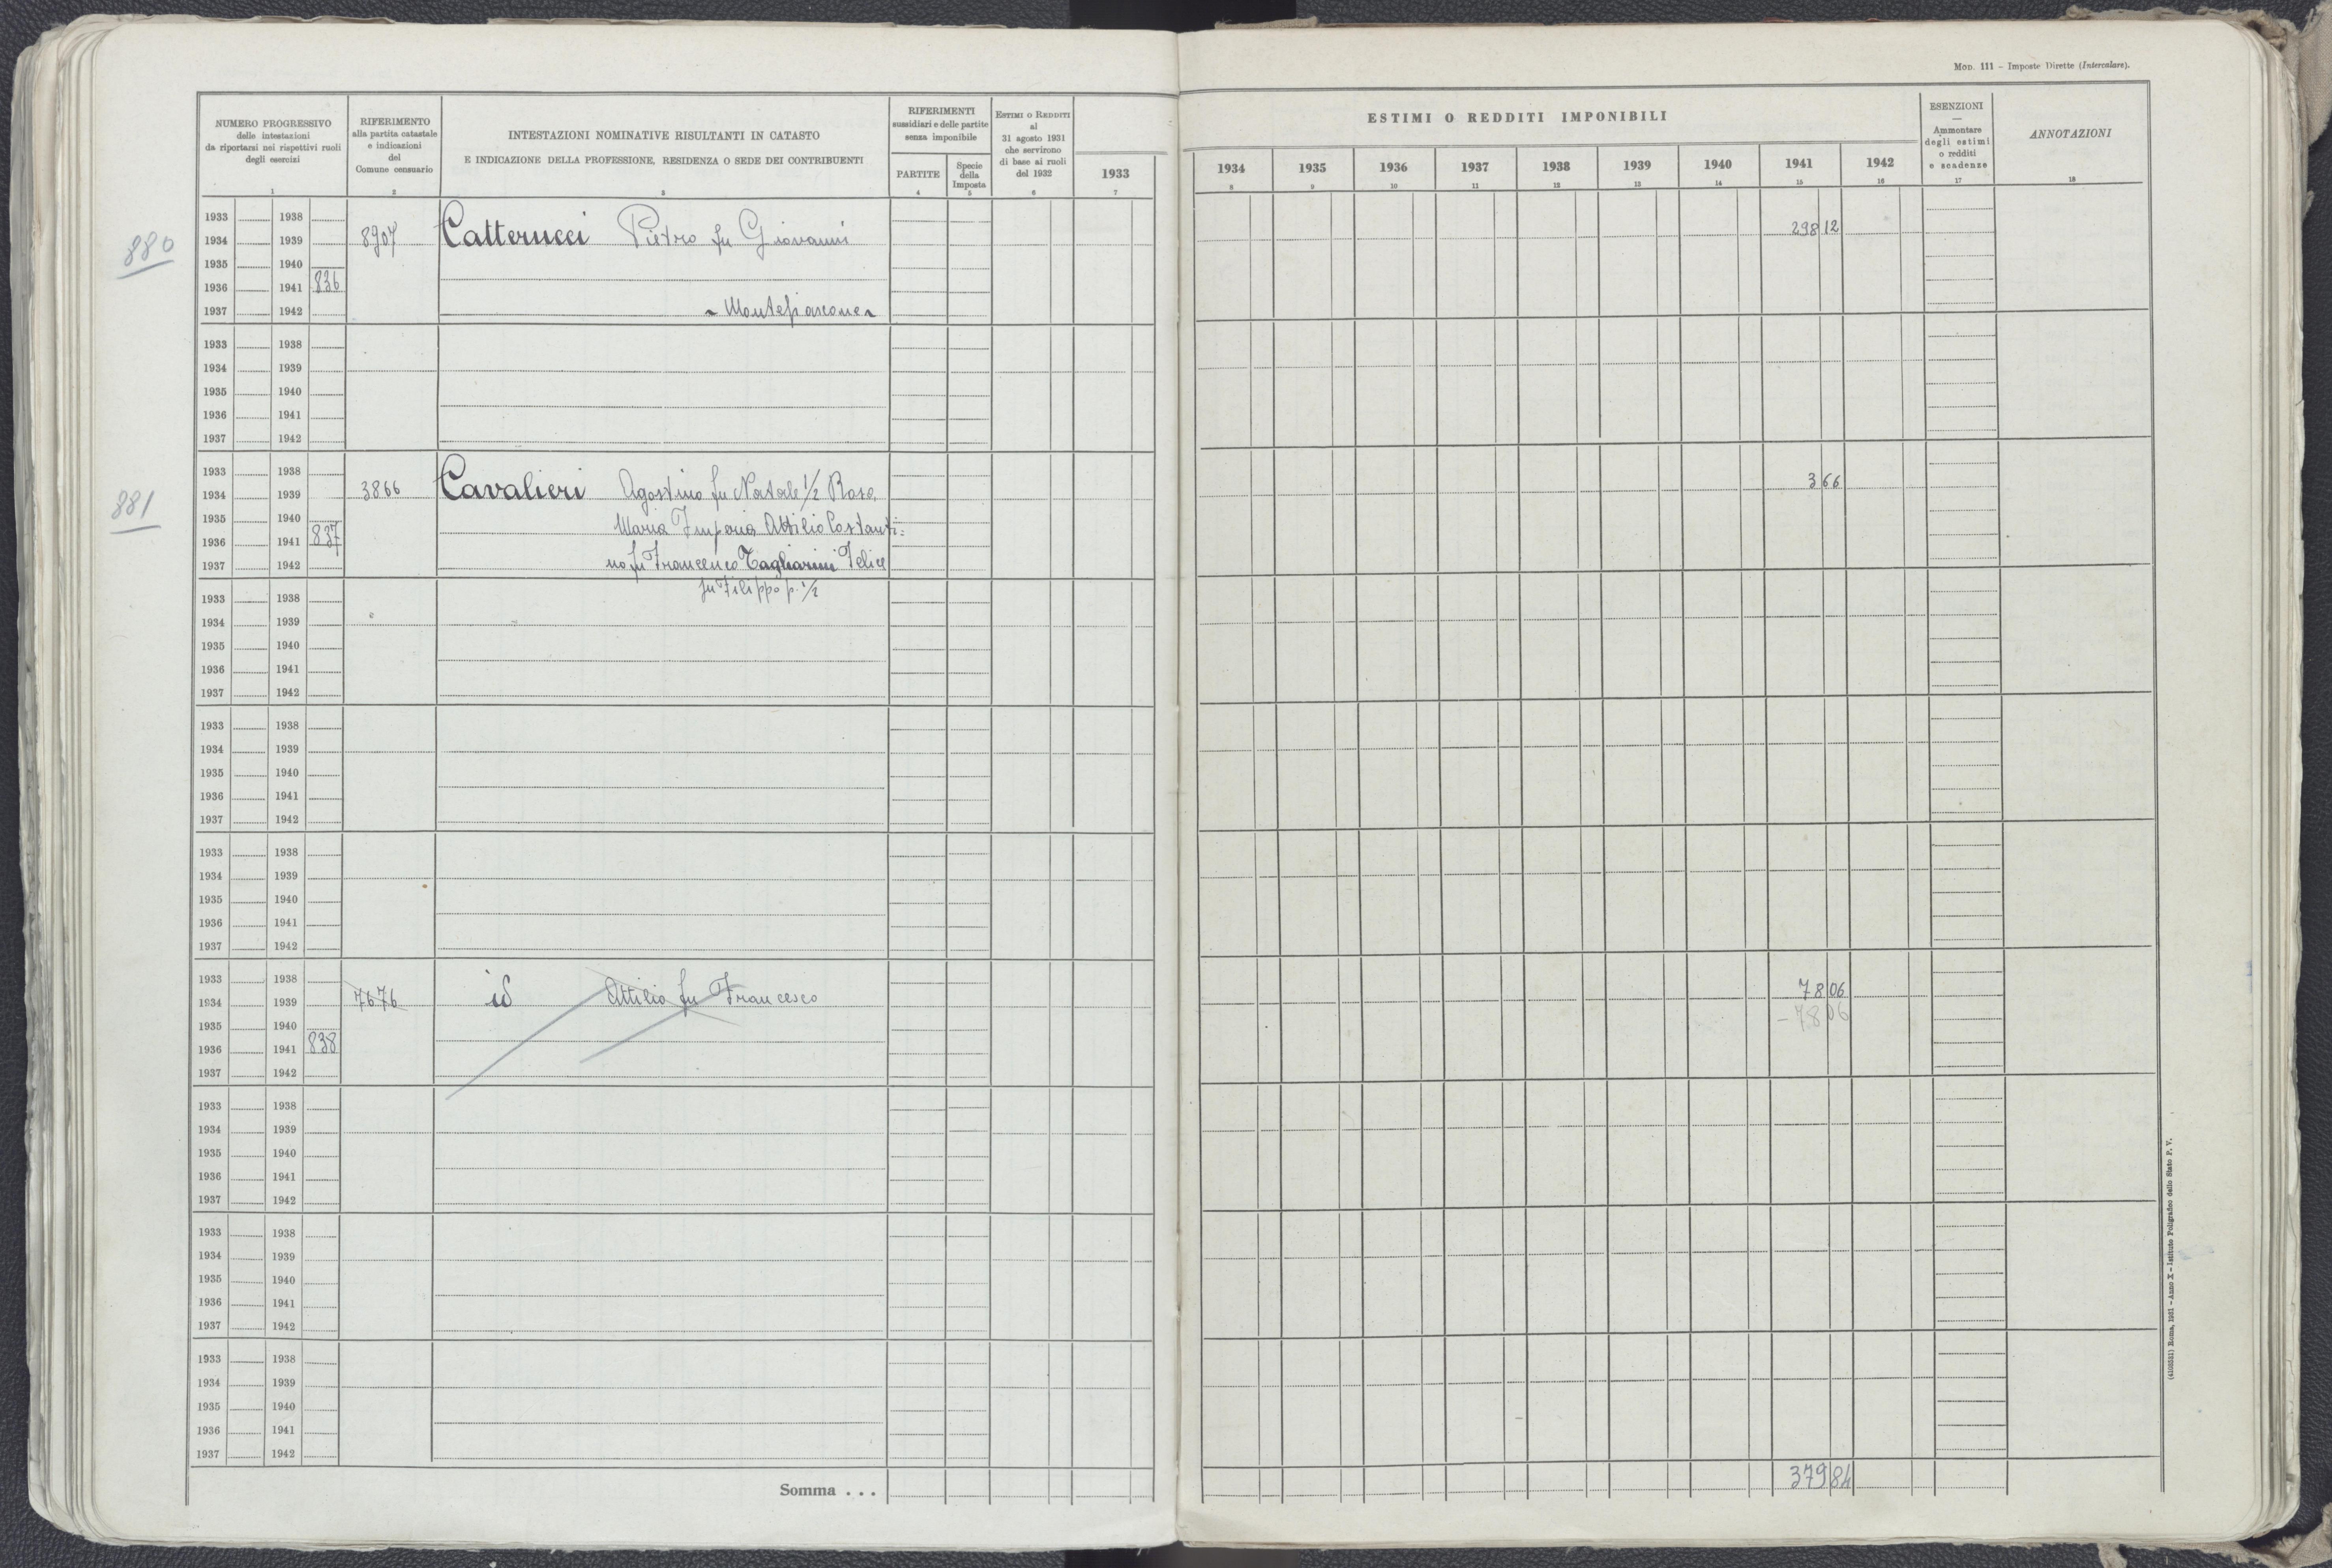 Mod. 111 - Imposte Dirette (Intercalare).
NUMERO PROGRESSIVO
delle intestazioni
da riportarsi nei rispettivi ruoli
degli esercizi
1
RIFERIMENTO
alla partita catastale
e indicazioni
del
Comune censuario
2
INTESTAZIONI NOMINATIVE RISULTANTI IN CATASTO
E INDICAZIONE DELLA PROFESSIONE, RESIDENZA O SEDE DEI CONTRIBUENTI
3
RIFERIMENTI
sussidiari e delle partite
senza imponibile
PARTITE
4
Specie
della
Imposta
5
Estimi o Redditi
al
31 agosto 1931
che servirono
di base ai ruoli
del 1932
6
1933
7
ESTIMI O REDDITI IMPONIBILI
1934 1935 1936 1937 1938 1939 1940 1941 1942
8 9 10 11 12 13 14 15 16
ESENZIONI
—
Ammontare
degli estimi
o redditi
e scadenze
17
ANNOTAZIONI
18
880
1933 1938
1934 1939 8907 Catterucci Pietro fu Giovanni 298 12
1935 1940
1936 1941 836
1937 1942 ~ Montefiascone ~
1933 1938
1934 1939
1935 1940
1936 1941
1937 1942
881
1933 1938
1934 1939 3866 Cavalieri Agostino fu Natale 1/2 Rosa, 3 66
1935 1940
Maria Imperia Attilio Costanti=
1936 1941 837
1937 1942 no fu Francesco Tagliarini Felice
fu Filippo p. 1/2
1933 1938
1934 1939
1935 1940
1936 1941
1937 1942
1933 1938
1934 1939
1935 1940
1936 1941
1937 1942
1933 1938
1934 1939
1935 1940
1936 1941
1937 1942
1933 1938
1934 1939 7676 id Attilio fu Francesco 78 06
1935 1940 - 78 06
1936 1941 838
1937 1942
1933 1938
1934 1939
1935 1940
1936 1941
1937 1942
1933 1938
1934 1939
1935 1940
1936 1941
1937 1942
1933 1938
1934 1939
1935 1940
1936 1941
1937 1942
Somma . . . 379 84
(4103251) Roma, 1931 - Anno X - Istituto Poligrafico dello Stato P. V.